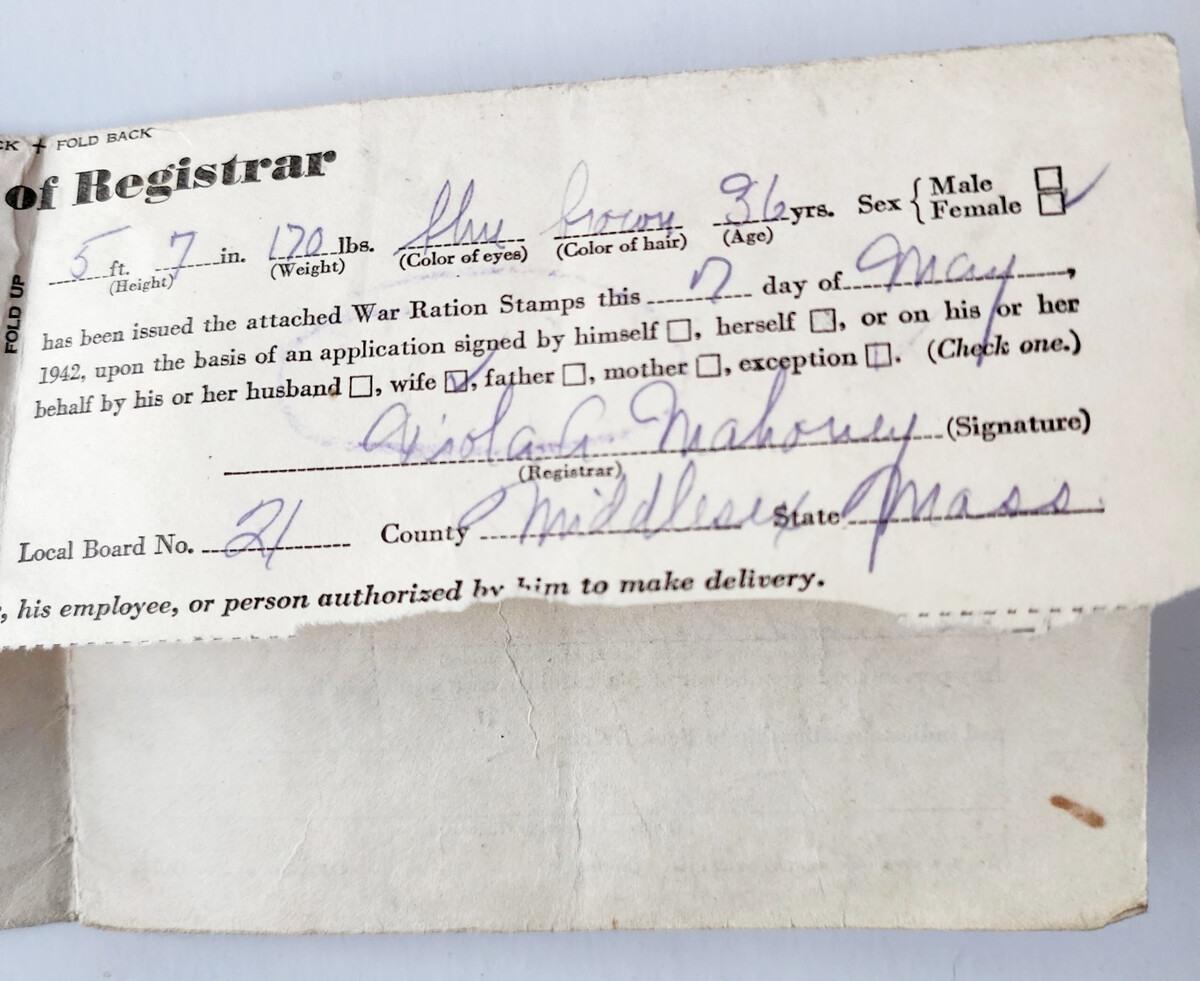 CK + FOLD BACK
of Registrar
FOLD UP
5 ft. 7 in. 170 lbs. blue brown 36 yrs. Sex { Male ☐
Female ☑
(Height) (Weight) (Color of eyes) (Color of hair) (Age)
has been issued the attached War Ration Stamps this 7 day of May,
1942, upon the basis of an application signed by himself ☐, herself ☐, or on his or her
behalf by his or her husband ☐, wife ☑, father ☐, mother ☐, exception ☐. (Check one.)
Viola G. Mahoney (Signature)
(Registrar)
Local Board No. 21 County Middlesex State Mass.
, his employee, or person authorized by him to make delivery.